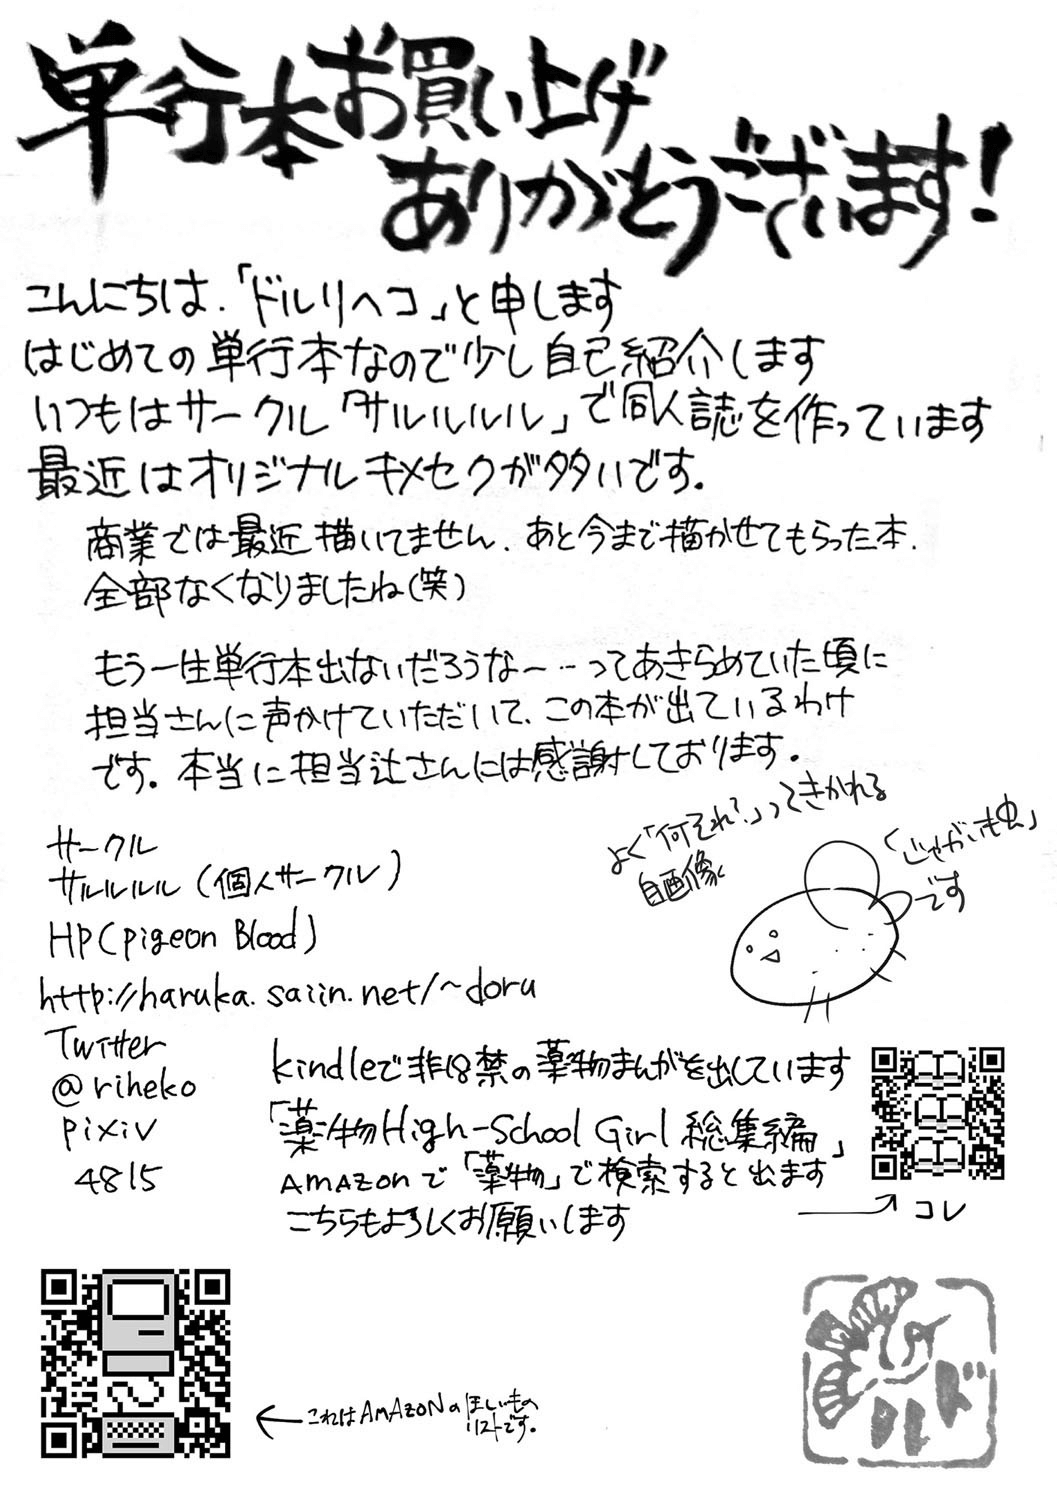 単行本お買い上げ
ありがとうございます!
こんにちは、「ドルリヘコ」と申します
はじめての単行本なので少し自己紹介します
いつもはサークル「サルルルル」で同人誌を作っています
最近はオリジナルキメセクが多いです。
商業では最近描いてません、あと今まで描かせてもらった本、
全部なくなりましたね(笑)
もう一生単行本出ないだろうな~…ってあきらめていた頃に
担当さんに声かけていただいて、この本が出ているわけ
です。本当に担当辻さんには感謝しております。
よく「何それ?」ってきかれる
自画像
「じゃがいも虫」
です
サークル
サルルルル(個人サークル)
HP(pigeon Blood)
http://haruka.saiin.net/~doru
Twitter
@riheko
pixiv
4815
kindleで非18禁の薬物まんがを出しています
「薬物High-School Girl 総集編」
AMAZonで「薬物」で検索すると出ます
こちらもよろしくお願いします
コレ
これはAMAZoNのほしいもの
リストです。
ドルリ